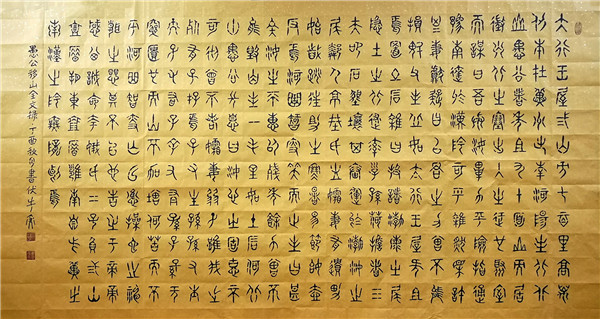 太行王屋二山方七百里高萬
仞本在冀州之南河陽之北北
山愚公者年且九十面山而居
懲山北之塞出入之迂也聚室
而謀曰吾與汝畢力平險指通
豫南達于漢陰可乎雜然相許
其妻獻疑曰以君之力曾不能
損魁父之丘如太行王屋何且
焉置土石雜曰投諸渤海之尾
隱土之北遂率子孫荷擔者三
夫叩石墾壤箕畚運於渤海之
尾鄰人京城氏之孀妻有遺男
始齔跳往助之寒暑易節始一
反焉河曲智叟笑而止之曰甚
矣汝之不惠以殘年餘力曾不
能毀山之一毛其如土石何北
山愚公長息曰汝心之固固不
可徹曾不若孀妻弱子雖我之
死有子存焉子又生孫孫又生
子子又有子子又有孫子子孫
孫無窮匱也而山不加增何苦
而不平河曲智叟亡以應操蛇
之神聞之懼其不已也告之
感其誠命夸娥氏二子負二山
南漢之陰無隴斷焉
愚公移山全文錄丁酉秋月書伏牛